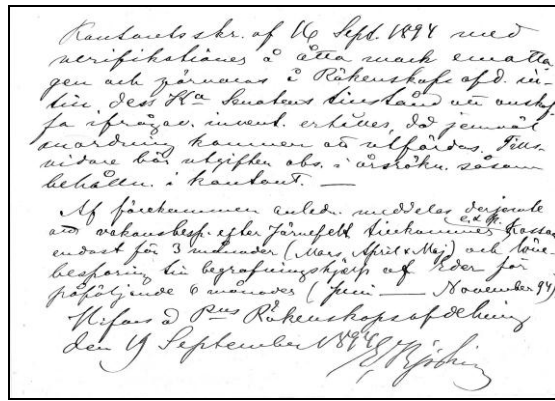 Kontorets skr. af 16 Sept. 1894 med
verifikationer å åtta mark emotta-
gen och förvaras å Räkenskaps afd. in-
till dess Ka Senatens tillstånd att anskaf-
fa ifrågav. invent. erhålles, då jemväl
anordning kommer att utfärdas. Tills-
vidare bör utgiften obs. i årsräkn. såsom
behålln. i kontant. —
Af förekommen anledn. meddelas derjemte
att vakansbesp. efter Järnefelt tillkommer e. d. Kassan
endast för 3 månader (Mars, April & Maj) och löne-
besparing till begrafningshjelp af Eder för
påföljande 6 månader (Juni — November 94)
Helsingfors å Räkenskapsafdelning
den 19 September 1894